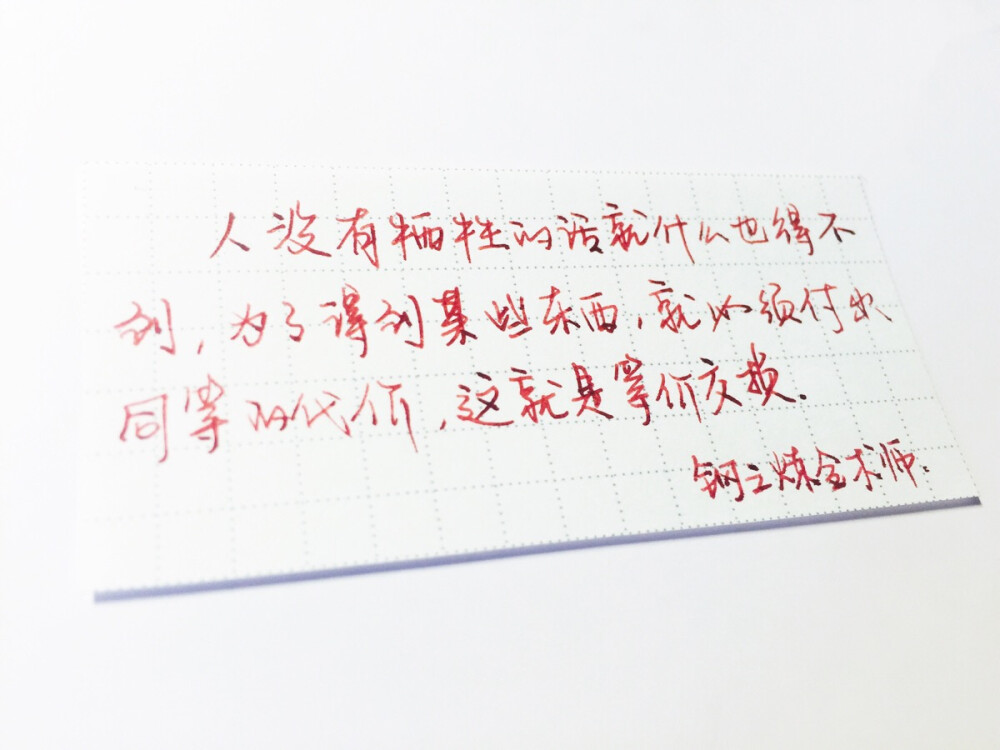 人没有牺牲的话就什么也得不
到，为了得到某些东西，就必须付出
同等的代价，这就是等价交换.
钢之炼金术师.